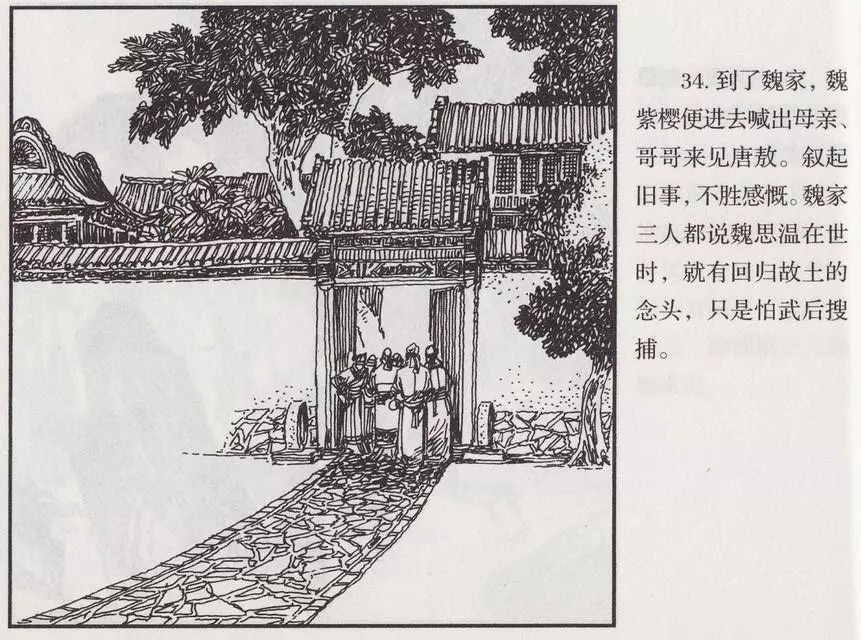 34. 到了魏家，魏
紫樱便进去喊出母亲、
哥哥来见唐敖。叙起
旧事，不胜感慨。魏家
三人都说魏思温在世
时，就有回归故土的
念头，只是怕武后搜
捕。